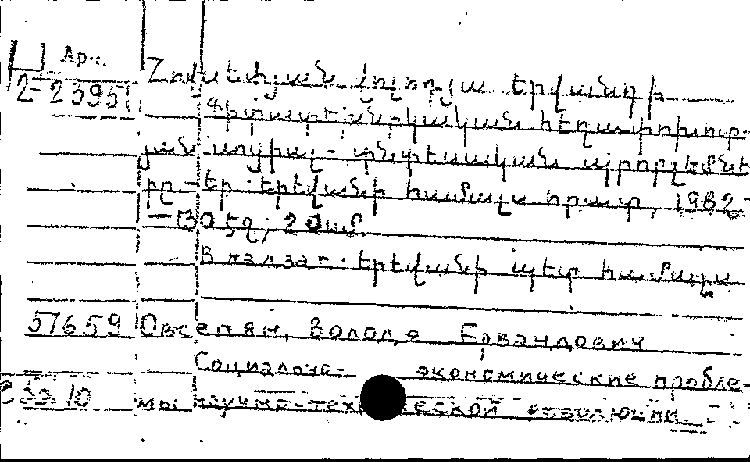 Арм.
2-23951 Հովսեփյան Վոլոդյա Երվանդի
Գիտատեխնիկական հեղափոխութ-
յան սոցիալ-տնտեսական պրոբլեմնե-
րը.-Եր.: Երևանի համալս. հրատ., 1982.-
-130 էջ; 20սմ.
В надзаг.: Երևանի պետ. համալս.
57659 Овсепян, Володя Ервандович
Социально- экономические пробле-
3310 мы научно-технической революции